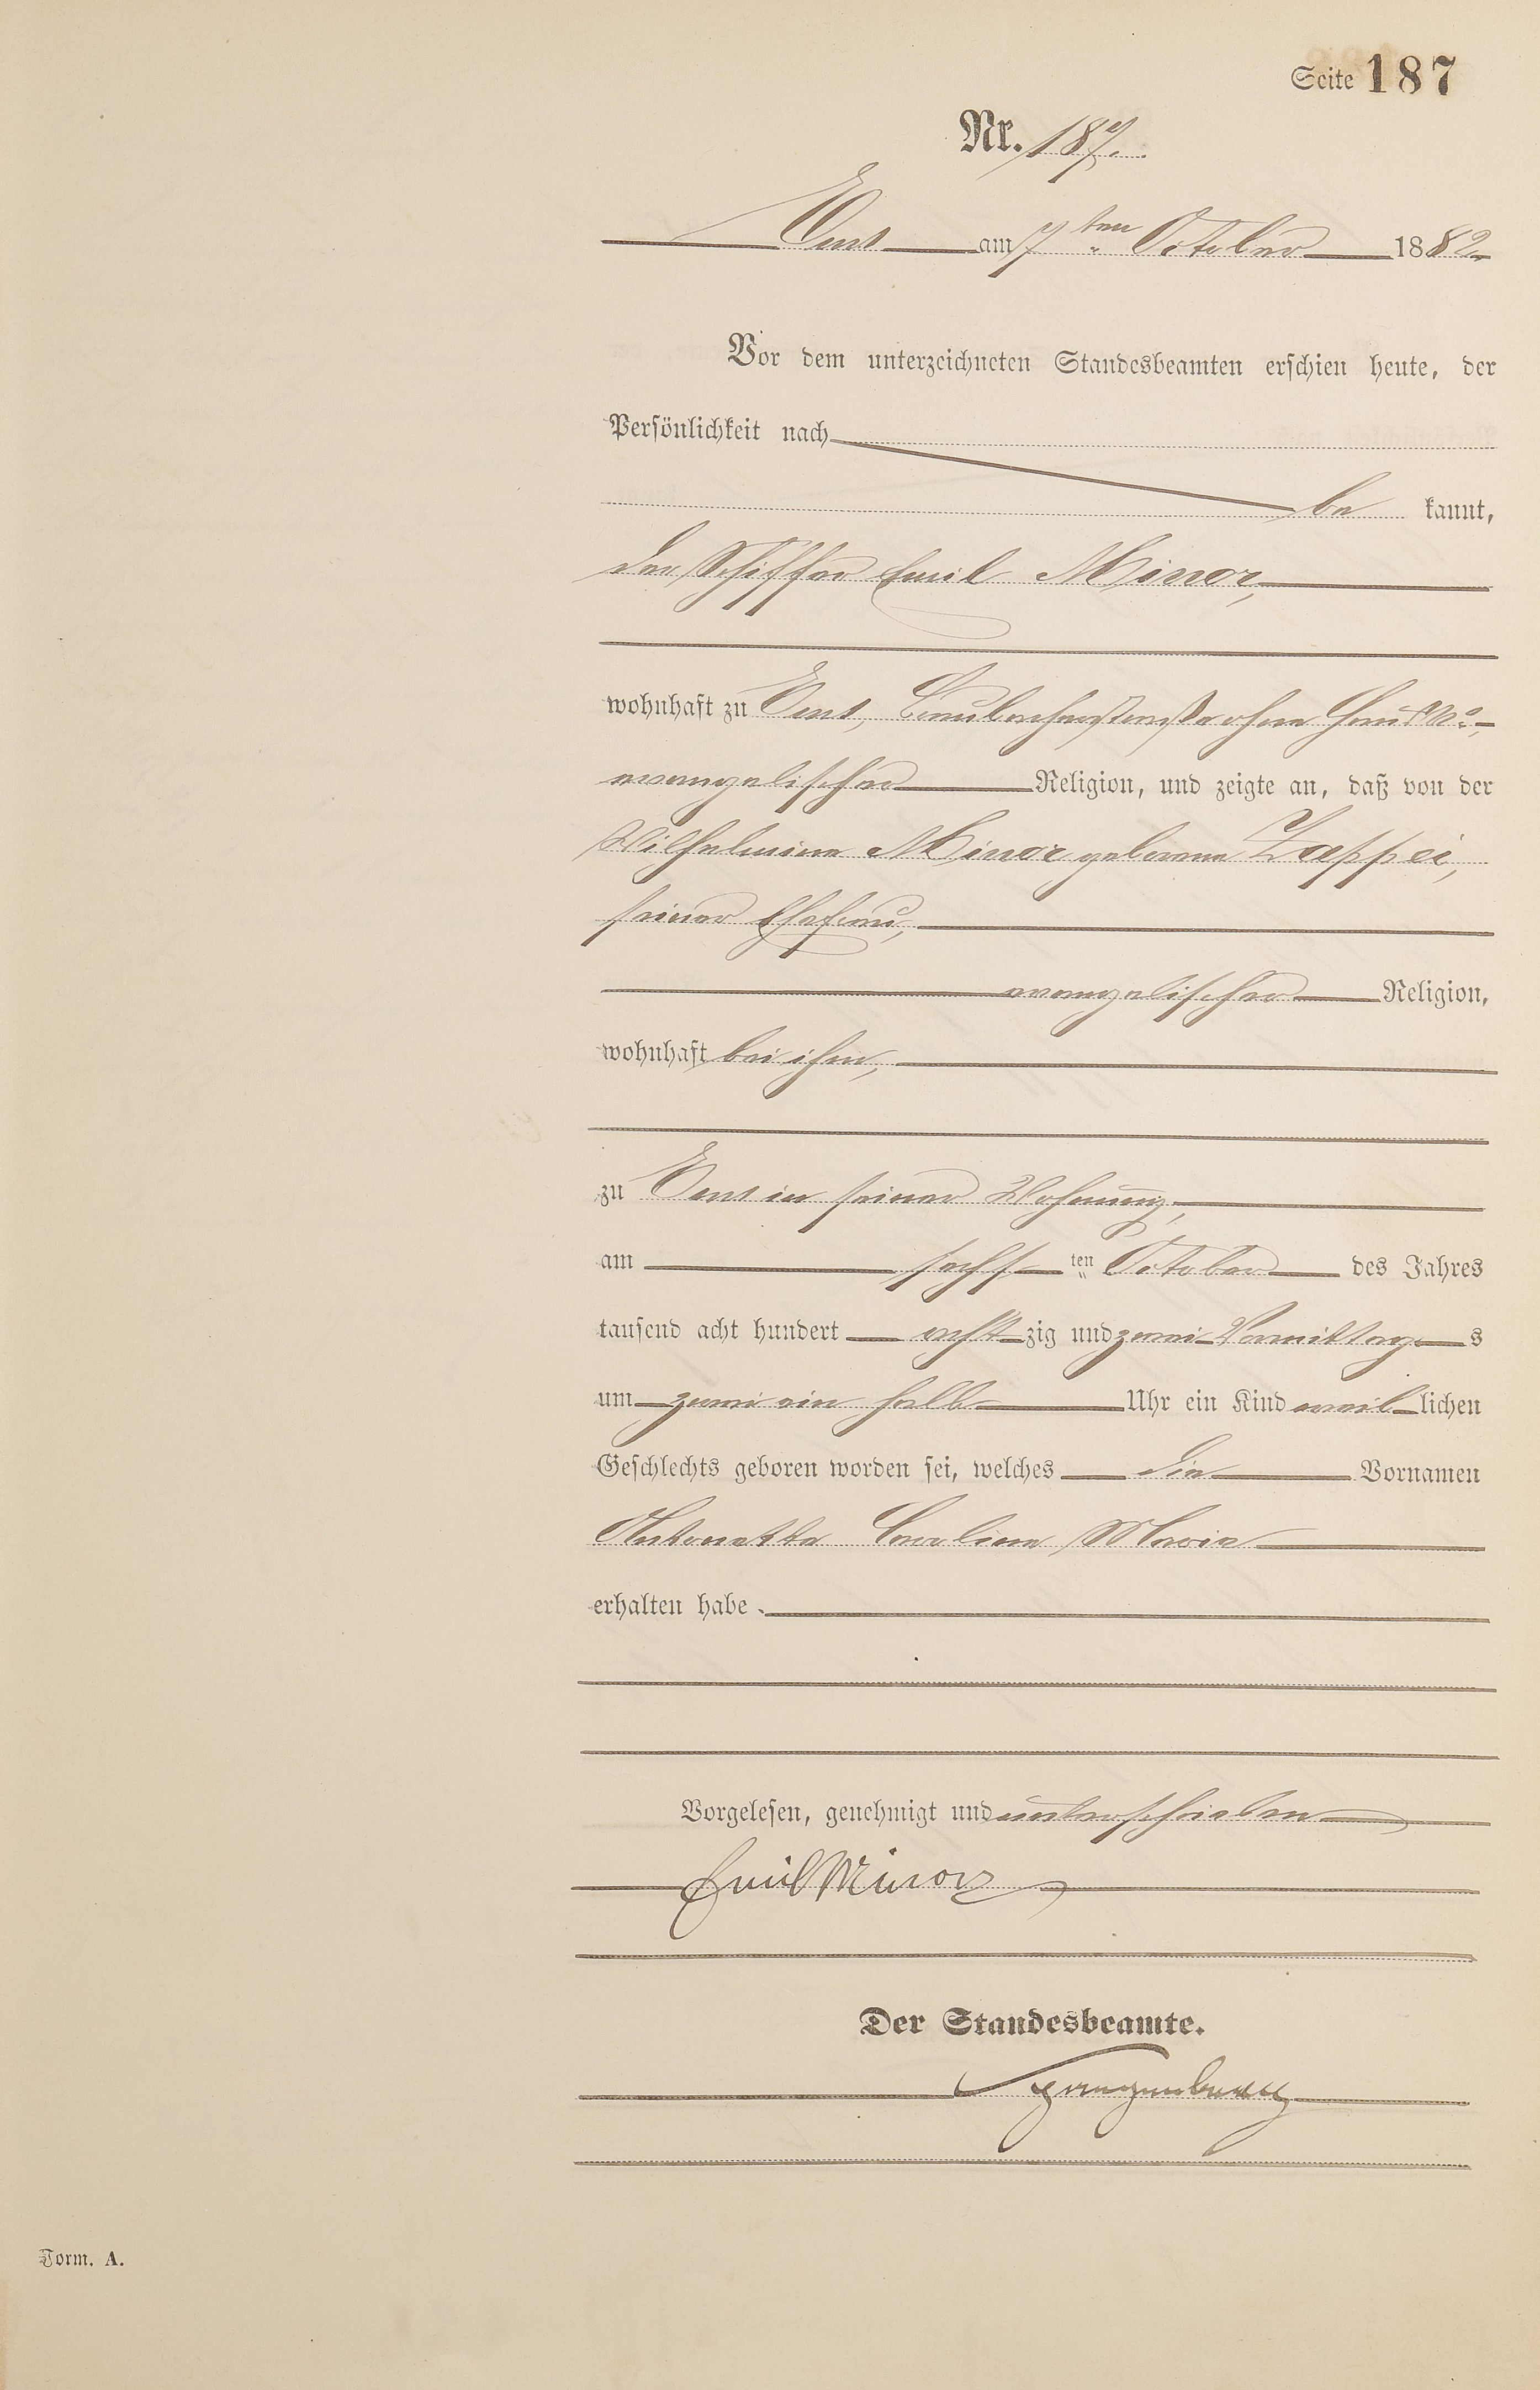 Seite 187
Nr. 187.
Ems am 7ten October 1882
Vor dem unterzeichneten Standesbeamten erschien heute, der
Persönlichkeit nach
be kannt,
der Schiffer Emil Minor,
wohnhaft zu Ems, ohne Haus No.,
evangelischer Religion, und zeigte an, daß von der
Wilhelmine Minor geborene Zappei,
seiner Ehefrau,
evangelischer Religion,
wohnhaft bei ihm,
zu Ems in seiner Wohnung,
am sechsten October des Jahres
tausend acht hundert achtzig und zwei Vormittags
um zwei ein halb Uhr ein Kind weiblichen
Geschlechts geboren worden sei, welches die Vornamen
Antonette Caroline Maria
erhalten habe.
Vorgelesen, genehmigt und unterschrieben
Emil Minor
Der Standesbeamte.
Spangenberg
Form. A.